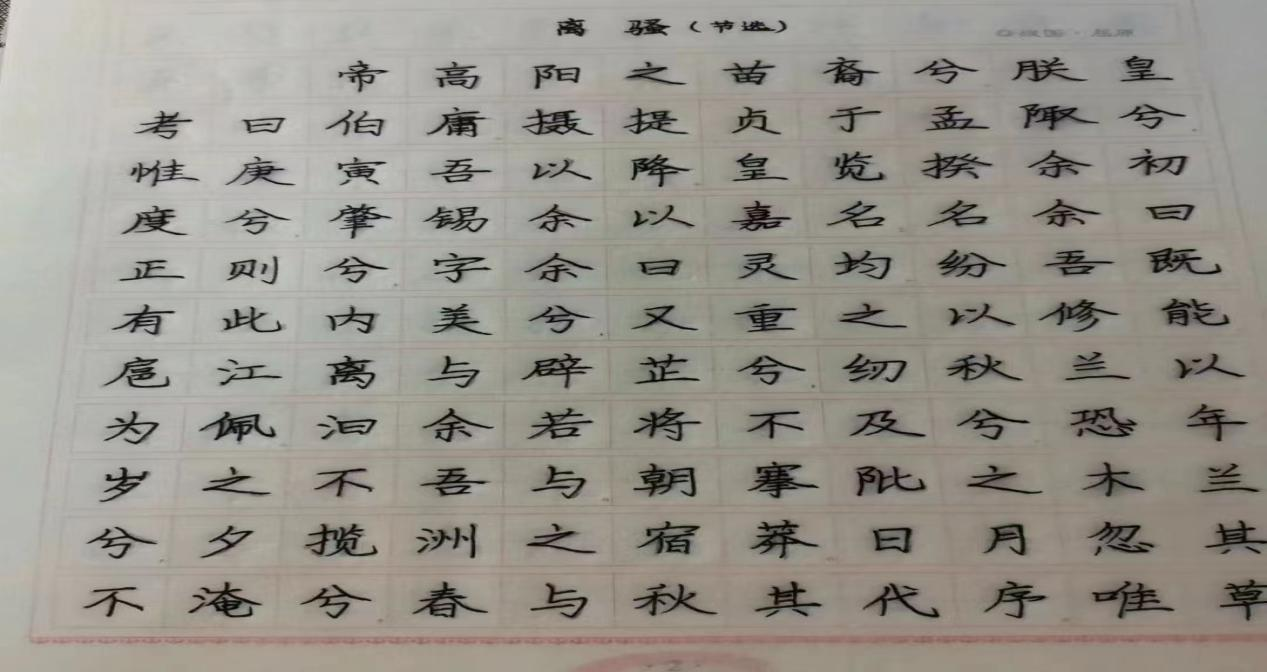 离 骚（节选）
◎战国·屈原
帝高阳之苗裔兮朕皇
考曰伯庸摄提贞于孟陬兮
惟庚寅吾以降皇览揆余初
度兮肇锡余以嘉名名余曰
正则兮字余曰灵均纷吾既
有此内美兮又重之以修能
扈江离与辟芷兮纫秋兰以
为佩汩余若将不及兮恐年
岁之不吾与朝搴阰之木兰
兮夕揽洲之宿莽日月忽其
不淹兮春与秋其代序唯草
·2·